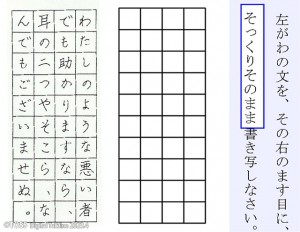 左がわの文を、その右のます目に、
そっくりそのまま書き写しなさい。
わたしのような悪い者
でも助かりますなら、
耳の二つやそこら、な
んでもございませぬ。